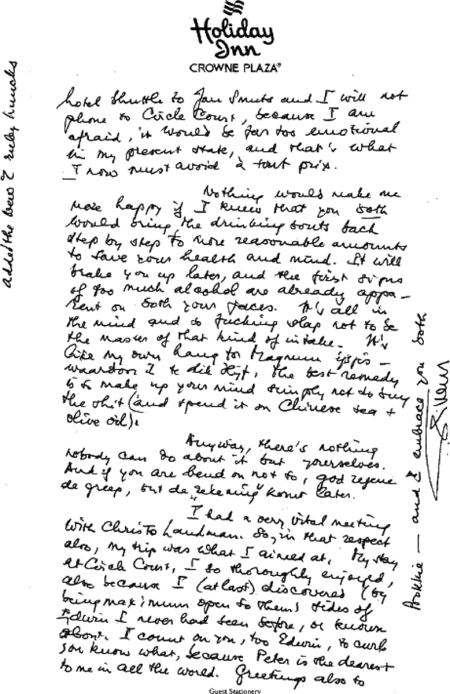 Holiday
Inn
CROWNE PLAZA®
hotel shuttle to Jan Smuts and I will not
phone to Circle Court, because I am
afraid, it would be far too emotional
in my present state, and that's what
I now must avoid à tout prix.
Nothing would make me
more happy if I knew that you both
would bring the drinking bouts back
step by step to more reasonable amounts
to save your health and mind. It will
brake you up later, and the first signs
of too much alcohol are already appa-
rent on both your faces. It's all in
the mind and so fucking slap not to be
the master of that kind of intake. It's
like my own hang for Magnum ijsjes —
waardoor I te dik blijf, the best remedy
is to make up your mind simply not to buy
the shit (and spend it on Chinese tea +
olive oil).
Anyway, there's nothing
nobody can do about it but yourselves.
And if you are bend on not to, god zegene
de greep, but de "rekening" komt later.
I had a very vital meeting
with Christo Landman. So, in that respect
also, my trip was what I aimed at. My stay
at Circle Court, I so thoroughly enjoyed,
also because I (at last) discovered (by
being maximum open to them) sides of
Edwin I never had seen before, or known
about. I count on you, too Edwin, to curb
you know what, because Peter is the dearest
to me in all the world. Greetings also to
Guest Stationery
added the
and embrace you both